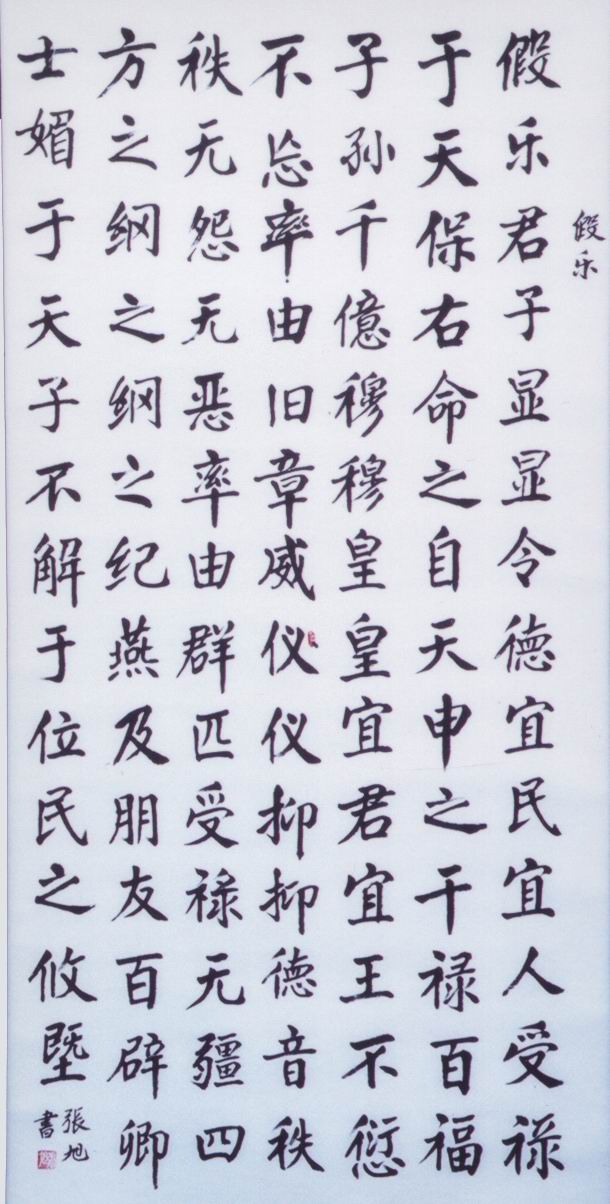 假乐
假乐君子显显令德宜民宜人受禄
于天保右命之自天申之干禄百福
子孙千億穆穆皇皇宜君宜王不愆
不忘率由旧章威仪仪抑抑德音秩
秩无怨无恶率由群匹受禄无疆四
方之纲之纲之纪燕及朋友百辟卿
士媚于天子不解于位民之攸塈
張旭
書